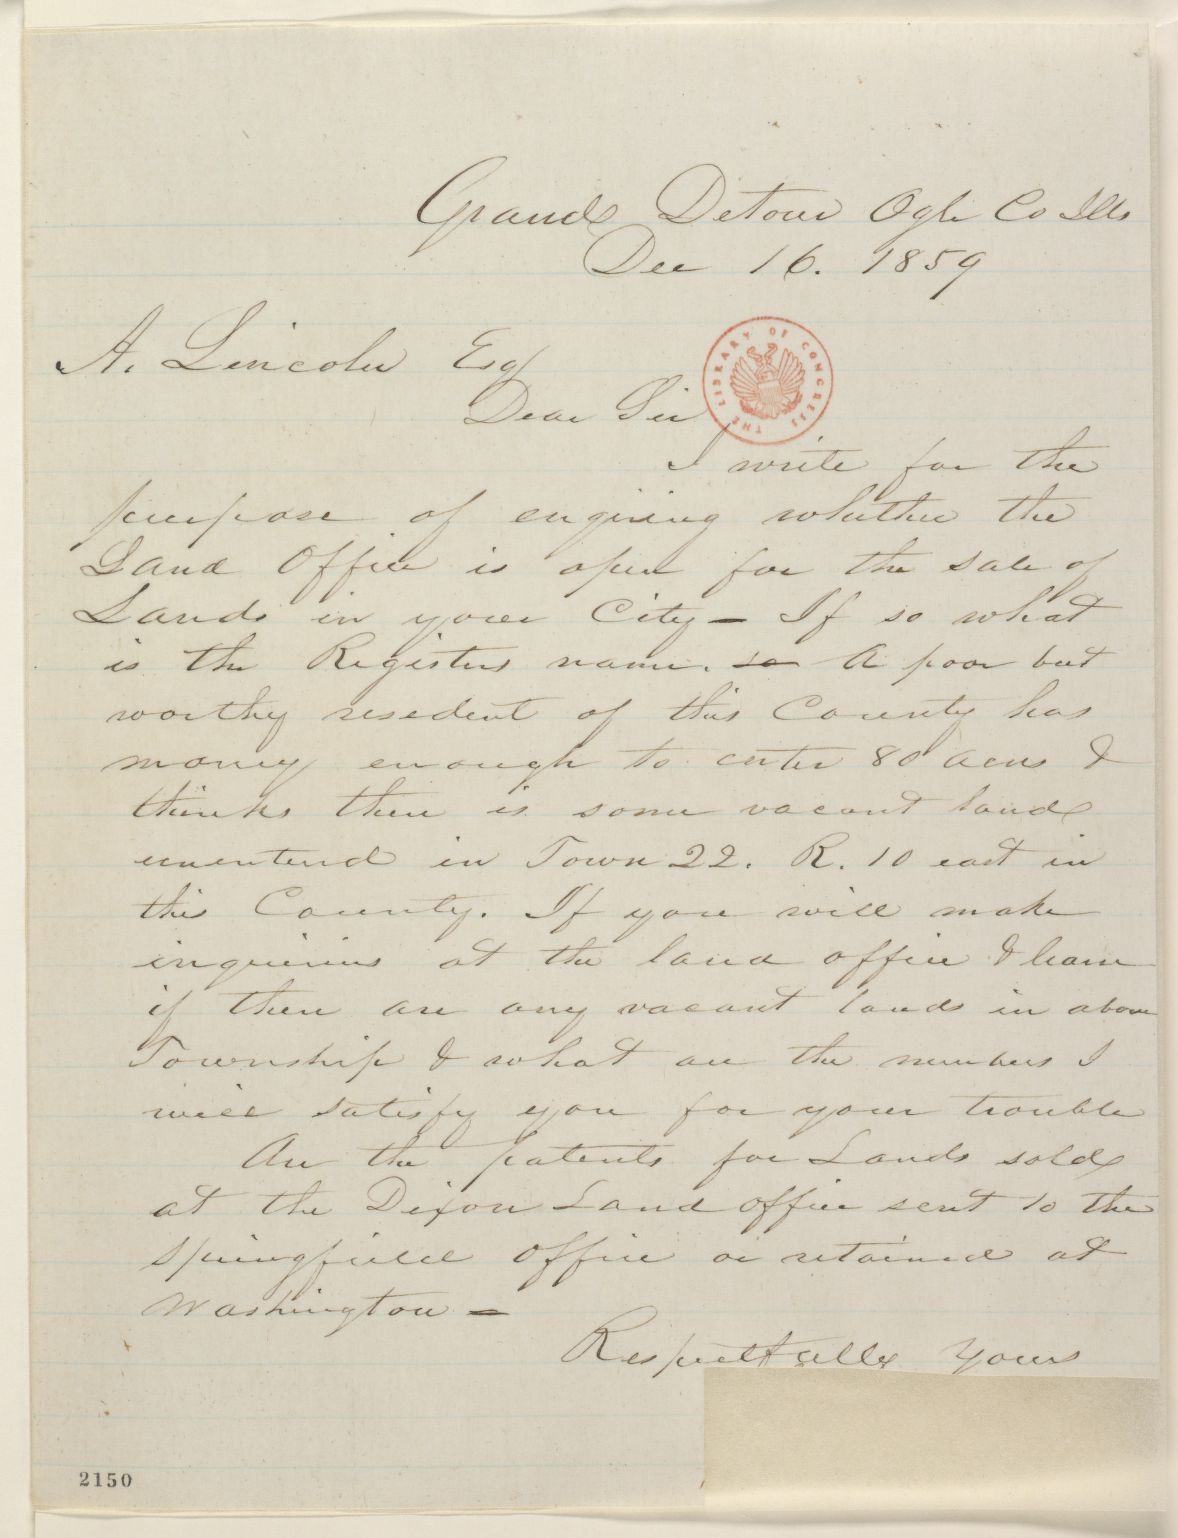 Grand Detour Ogle Co Ills
Dec 16. 1859
A. Lincoln Esq
Dear Sir
THE LIBRARY OF CONGRESS
I write for the
purpose of enqiring whether the
Land Office is open for the sale of
Lands in your City — If so what
is the Registers name. A poor but
worthy resedent of this County has
money enough to enter 80 acres &
thinks there is some vacant land
unentered in Town 22. R. 10 east in
this County. If you will make
inquiries at the land office & learn
if there are any vacant lands in above
Township & what are the numbers I
will satisfy you for your trouble
Are the patents for Lands sold
at the Dixon Land office sent to the
Springfield office or retained at
Washington —
Respectfully Yours
2150